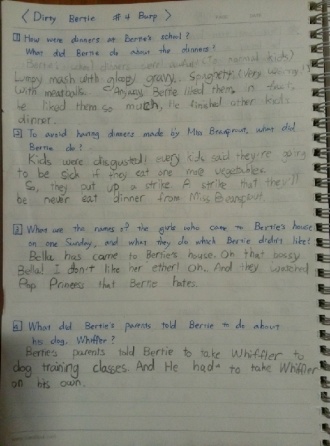 < Dirty Bertie #4 Burp >
1 How were dinners at Bertie's school?
What did Bertie do about the dinners?
Bertie's dinners (To normal kids)
Lumpy mash with gloopy gravy. Spaghetti (Very)
(with meatballs. Anyway Bertie liked them in that,
he liked them so much, He finished other kid's
dinner.
2 To avoid having dinners made by Miss Beansprout, what did
Bertie do?
Kids were disgusted! every kids said they're going
to be sick if they eat one more vegetables.
So, they put up a strike. A strike that they'll
be never eat dinner from Miss Beansprout.
3 What was the names? the girls who came to Bertie's house
on one Sunday, and what they do which Bertie didn't like?
Bella has came to Bertie's house. Oh that bossy
Bella! I don't like her ether! Oh.. And they watched
Pop Princess that Bertie hates.
4 What did Bertie's parents told Bertie to do about
his dog, Whiffler?
Berties parents told Bertie to take Whiffler to
dog training classes. And He had to take Whiffler
on his own.